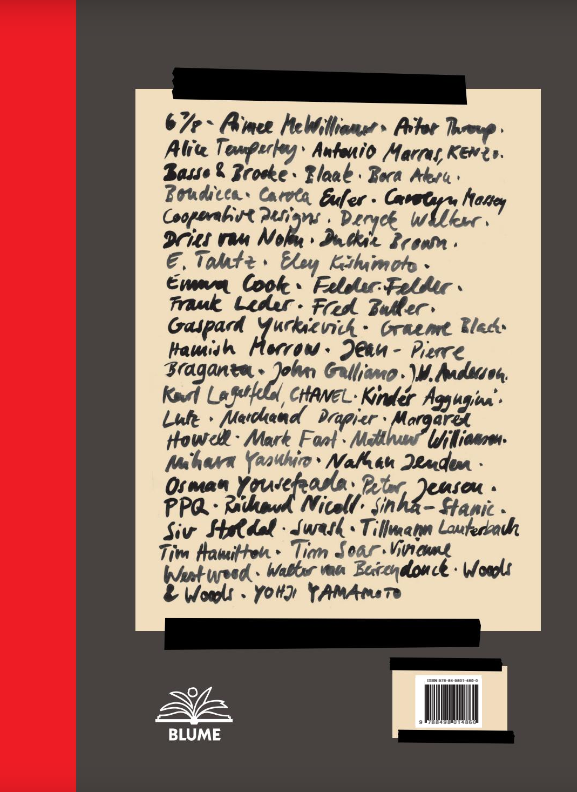 6 7/8 · Aimee McWilliams · Aitor Throup ·
Alice Temperley · Antonio Marras, KENZO ·
Basso & Brooke · Blaak · Bora Aksu ·
Boudicca · Carola Euler · Carolyn Massey
Cooperative Designs · Deryck Walker ·
Dries van Noten · Duckie Brown ·
E. Tautz · Eley Kishimoto ·
Emma Cook · Felder·Felder ·
Frank Leder · Fred Butler ·
Gaspard Yurkievich · Graeme Black ·
Hamish Morrow · Jean-Pierre
Braganza · John Galliano · J.W. Anderson ·
Karl Lagerfeld, CHANEL · Kinder Aggugini ·
Lutz · Marchand Drapier · Margaret
Howell · Mark Fast · Matthew Williamson ·
Mihara Yasuhiro · Nathan Jenden ·
Osman Yousefzada · Peter Jensen ·
PPQ · Richard Nicoll · Sinha-Stanic ·
Siv Støldal · Swash · Tillmann Lauterbach
Tim Hamilton · Tim Soar · Vivienne
Westwood · Walter van Beirendonck · Woods
& Woods · YOHJI YAMAMOTO
BLUME